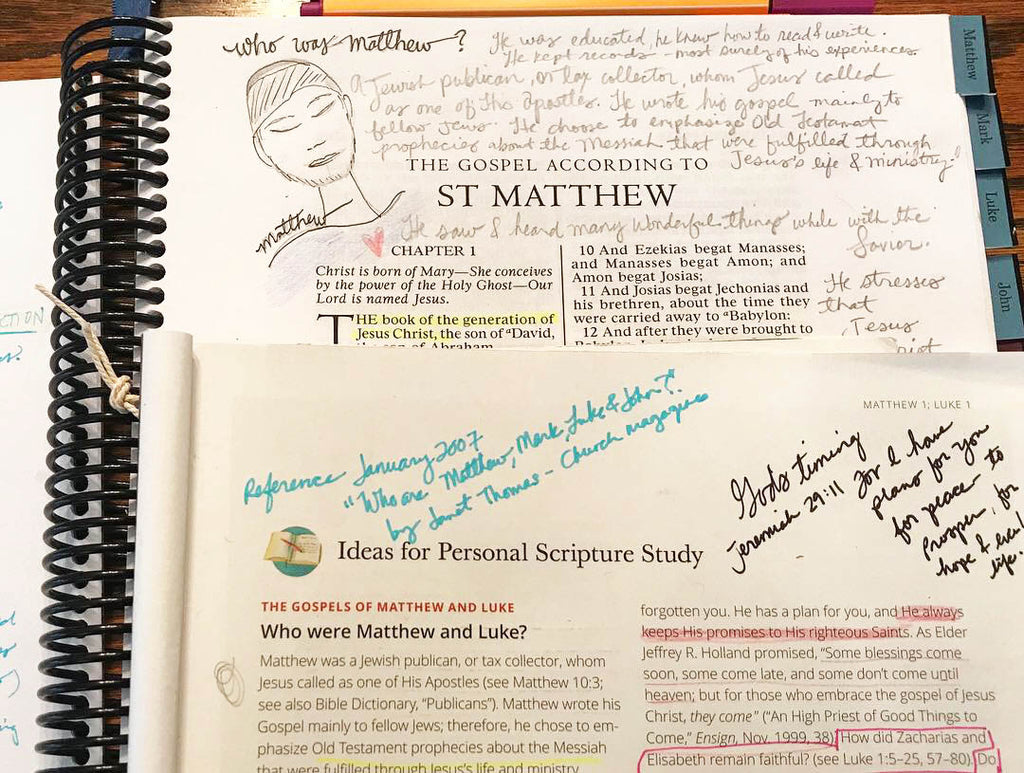 who was Matthew?
He was educated, he knew how to read & write.
He kept records - most surely of his experiences
A Jewish publican, or tax collector, whom Jesus called
as one of His Apostles. He wrote his gospel mainly to
fellow Jews. He choose to emphasize Old Testamat
prophecies about the Messiah that were fulfilled through
Jesus's life & ministry!
THE GOSPEL ACCORDING TO
ST MATTHEW
Matthew
He saw & heard many wonderful things while with the
Savior.
He stresses
that
Jesus
CHAPTER 1
Christ is born of Mary—She conceives
by the power of the Holy Ghost—Our
Lord is named Jesus.
THE book of the generation of
Jesus Christ, the son of aDavid,
the son of Abraham
10 And Ezekias begat Manasses;
and Manasses begat Amon; and
Amon begat Josias;
11 And Josias begat Jechonias and
his brethren, about the time they
were carried away to aBabylon:
12 And after they were brought to
Matthew
Mark
Luke
John
MATTHEW 1; LUKE 1
Reference January 2007
"Who are Matthew, Mark, Luke & John?"
by Janet Thomas - Church magazines
Gods timing
Jeremiah 29:11 For I have
plans for you
for peace to
prosper, for
hope &
life.
Ideas for Personal Scripture Study
THE GOSPELS OF MATTHEW AND LUKE
Who were Matthew and Luke?
Matthew was a Jewish publican, or tax collector, whom
Jesus called as one of His Apostles (see Matthew 10:3;
see also Bible Dictionary, “Publicans”). Matthew wrote his
Gospel mainly to fellow Jews; therefore, he chose to em-
phasize Old Testament prophecies about the Messiah
that were fulfilled through Jesus's life and ministry
forgotten you. He has a plan for you, and He always
keeps His promises to His righteous Saints. As Elder
Jeffrey R. Holland promised, “Some blessings come
soon, some come late, and some don't come until
heaven; but for those who embrace the gospel of Jesus
Christ, they come” (“An High Priest of Good Things to
Come,” Ensign, Nov. 1999, 38). How did Zacharias and
Elisabeth remain faithful? (see Luke 1:5–25, 57–80). Do